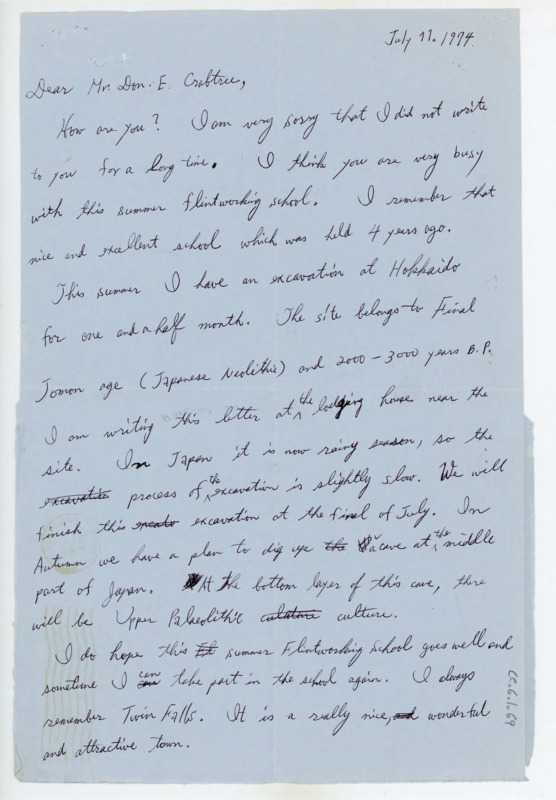 July 11. 1974.
Dear Mr. Don. E. Crabtree,
How are you? I am very sorry that I did not write
to you for a long time. I think you are very busy
with this summer flintworking school. I remember that
nice and excellent school which was held 4 years ago.
This summer I have an excavation at Hokkaido
for one and a half month. The site belongs to Final
Jomon age (Japanese Neolithic) and 2000-3000 years B.P.
I am writing this letter at the lodging house near the
site. In Japan it is now rainy season, so the
excavatio process of the excavation is slightly slow. We will
finish this excata excavation at the final of July. In
Autumn we have a plan to dig up the a cave at the middle
part of Japan. At the bottom layer of this cave, there
will be Upper Palaeolithic culature culture.
I do hope this summer Flintworking School goes well and
sometime I can take part in the school again. I always
remember Twin Falls. It is a really nice, and wonderful
and attractive town.
CC.6.1a.69